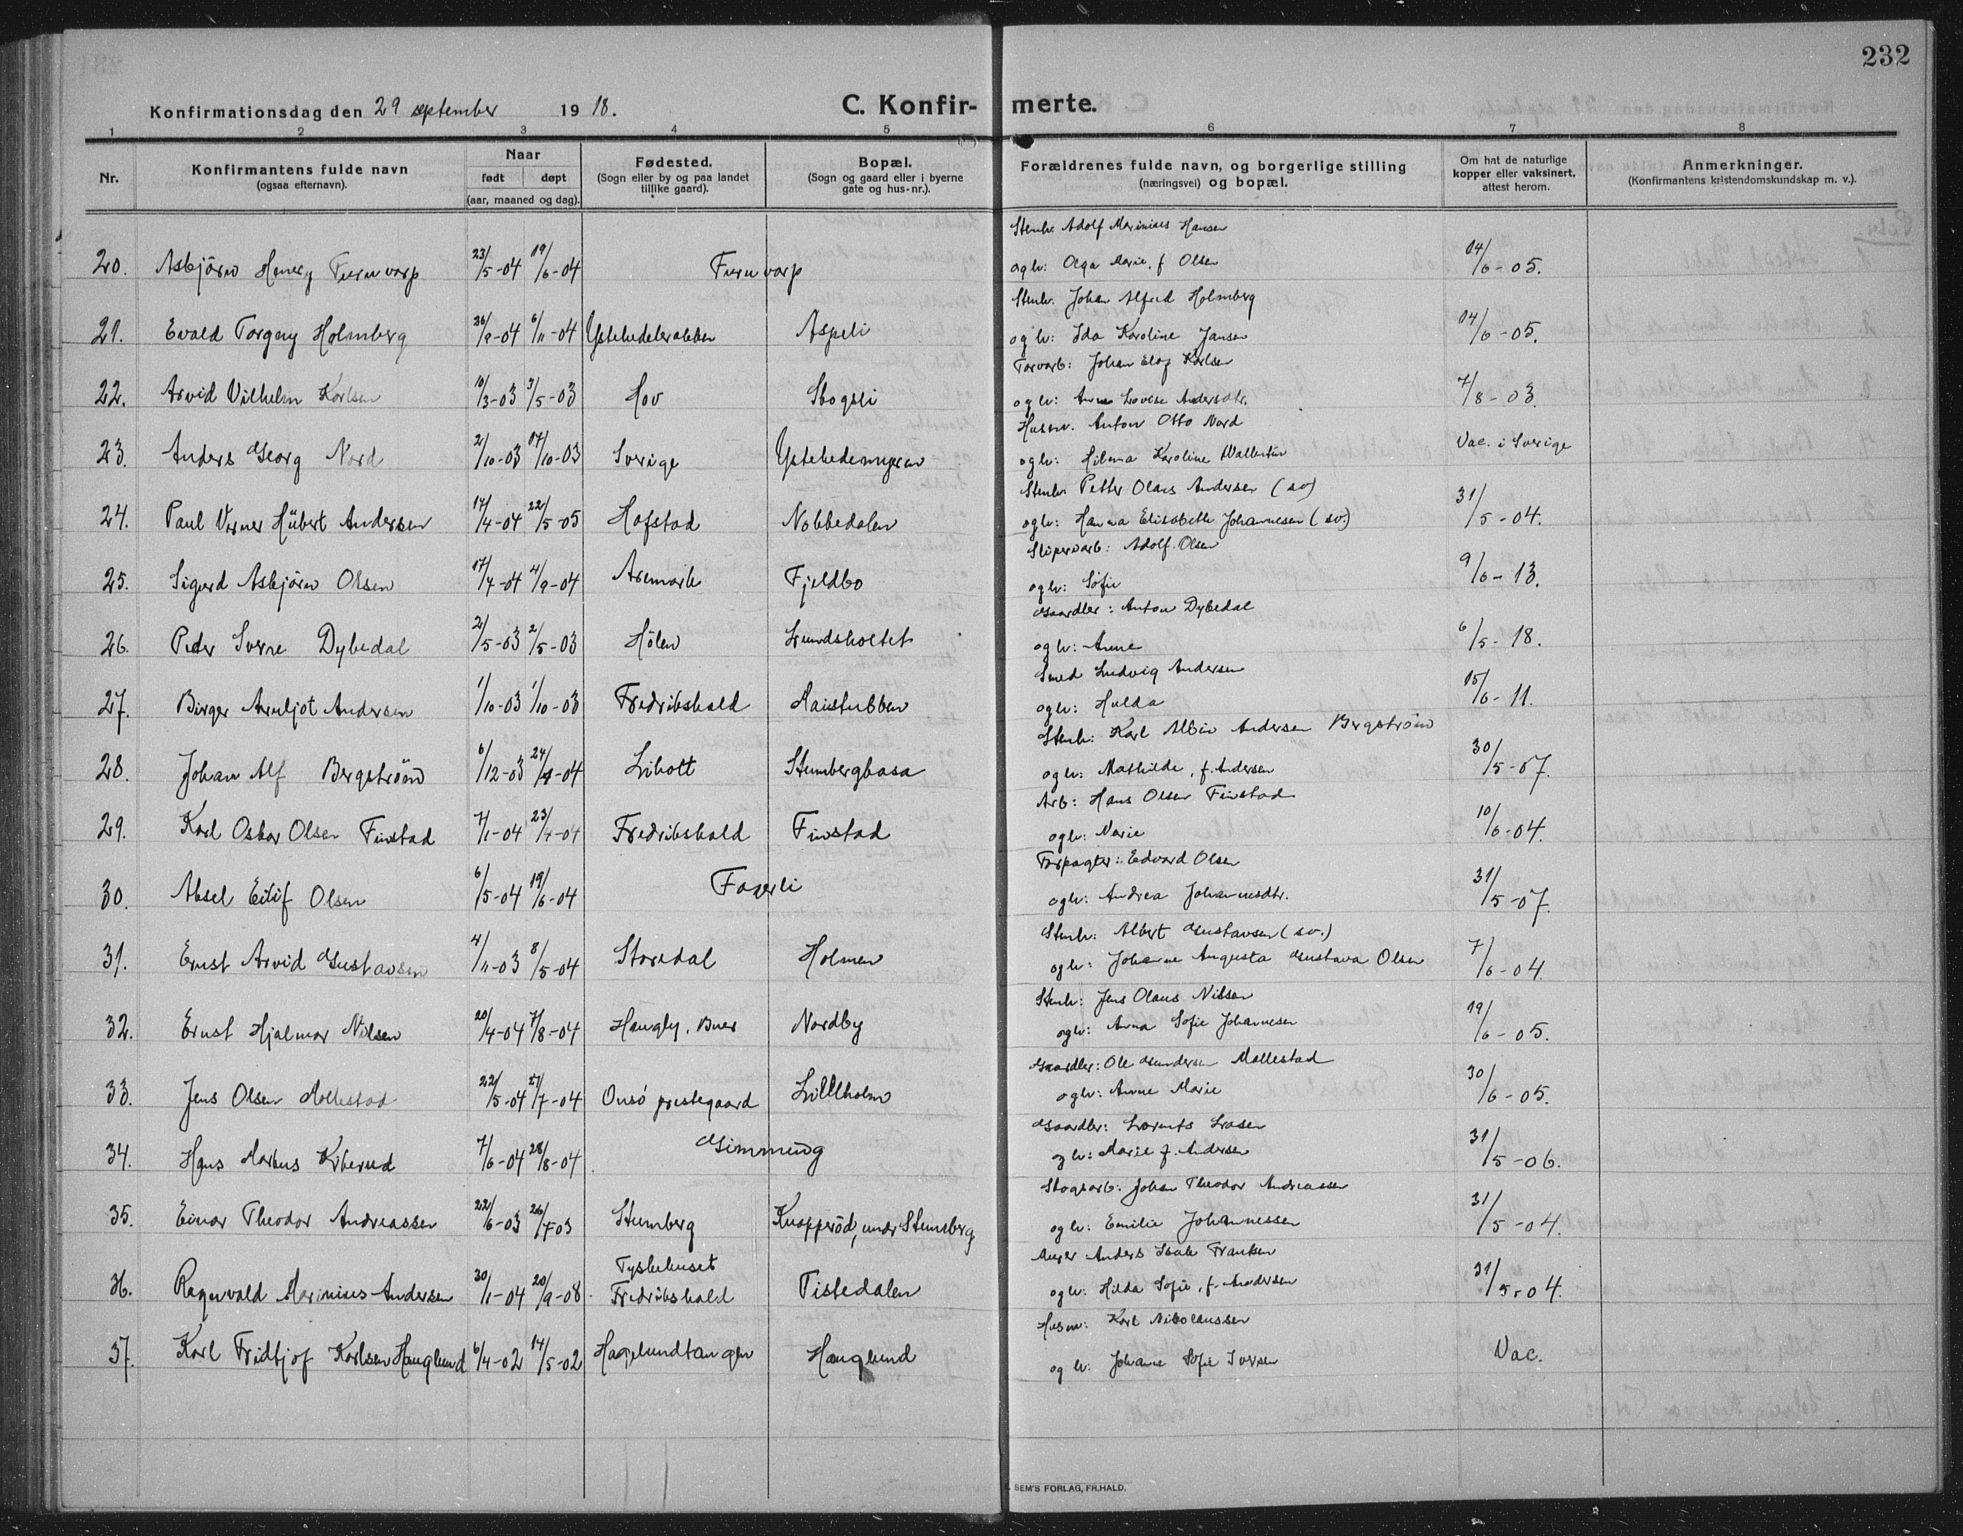 232
Konfirmationsdag den 29 september 1918.
C. Konfirmerte.
1 2 3 4 5 6 7 8
Nr.
Konfirmantens fulde navn
(ogsaa efternavn).
Naar
født døpt
(aar, maaned og dag).
Fødested.
(Sogn eller by og paa landet
tillike gaard).
Bopæl.
(Sogn og gaard eller i byerne
gate og hus-nr.).
Forældrenes fulde navn, og borgerlige stilling
(næringsvei) og bopæl.
Om hat de naturlige
kopper eller vaksinert,
attest herom.
Anmerkninger.
(Konfirmantens kristendomskundskap m. v.).
Stenh. Adolf Marinius Hansen
20. Asbjørn Henry Furuvarp 23/5-04 19/6-04 Furuvarp og h: Olga Marie, f. Olsen 14/6-05.
Stenh. Johan Alfred Holmberg
21. Evald Torgny Holmberg 26/9-04 6/11-04 Aspeli og h: Ida Karoline Jansen 14/6-05.
Torvarb: Johan Elof Karlsen
22. Arvid Vilhelm Karlsen 10/3-03 3/5-03 Hov Skogsli og h: Anna Lovise Andersdtr. 7/8-03.
Husm. Anton Otto Nord
23. Anders Georg Nord 2/10-03 17/10-03 Sverige Ystehedemyren og h: Hilma Karoline Wallentin Vac. i Sverige
Stenh. Petter Olaus Andersen (sv)
24. Paul Verner Hübert Andersen 17/4-04 22/5-05 Hafstad Nokkedalen og h: Hanna Elisabeth Johannesen (sv.) 31/5-04.
Sliperiarb: Adolf Olsen
25. Sigurd Asbjørn Olsen 17/7-04 4/9-04 Aremark Fjeldbo og h: Sofie 9/6-13.
Gaardbr: Anton Dybedal
26. Peder Sverre Dybedal 2/5-03 2/5-03 Hølen Lundsholtet og h: Anne 6/5-18.
Smed Ludvig Andersen
27. Birger Arnljot Andersen 1/10-03 1/10-03 Fredrikshald Maistubben og h: Hulda 15/6-11.
Stenh: Karl Albin Andersen Bergstrøm
28. Johan Alf Bergstrøm 6/12-03 24/4-04 Liholt Stumbergkasa og h: Mathilde, f. Andersen 30/5-07.
Arb: Hans Olsen Finstad
29. Karl Oskar Olsen Finstad 7/1-04 23/4-04 Fredrikshald Finstad og h: Marie 10/6-04.
Forpagter: Edvard Olsen
30. Aksel Eilif Olsen 6/5-04 19/6-04 Fagerli og h: Andrea Johannesdtr. 31/5-07.
Stenh: Albert Gustavsen (sv.)
31. Ernst Arvid Gustavsen 4/11-03 8/5-04 Storedal Holmen og h: Johanne Augusta Gustava Olsen 7/6-04.
Stenh: Jens Olaus Nilsen
32. Ernst Hjalmar Nilsen 20/4-04 7/8-04 Haugby, Buer Nordby og h: Anna Sofie Johannesen 19/6-05.
Gaardbr: Ole Gundersen Mollestad
33. Jens Olsen Mollestad 22/5-04 27/7-04 Onsø prestegaard Lillholm og h: Anne Marie 30/6-05.
Gaardbr: Lorents Larsen
34. Hans Markus Kiberud 7/6-04 28/8-04 Gimming og h: Marie f. Andersen 31/5-06.
Skogsarb: Johan Theodor Andreassen
35. Einar Theodor Andreassen 22/6-03 26/7-03 Stumberg Knapperød, under Stumberg og h: Emilie Johannessen 31/5-04.
Murer Anders Isak Franksen
36. Ragnvald Marinius Andersen 30/1-04 20/9-08. Tyskehuset Fredrikshald Tistedalen og h: Hilda Sofie, f. Andersen 31/5-04.
Husm: Karl Nikolaussen
37. Karl Fridtjof Karlsen Hauglund 6/4-02 14/5-02 Hagelundtangen Hauglund og h: Johanne Sofie Iversen Vac.
SEM'S FORLAG, FR.HALD.